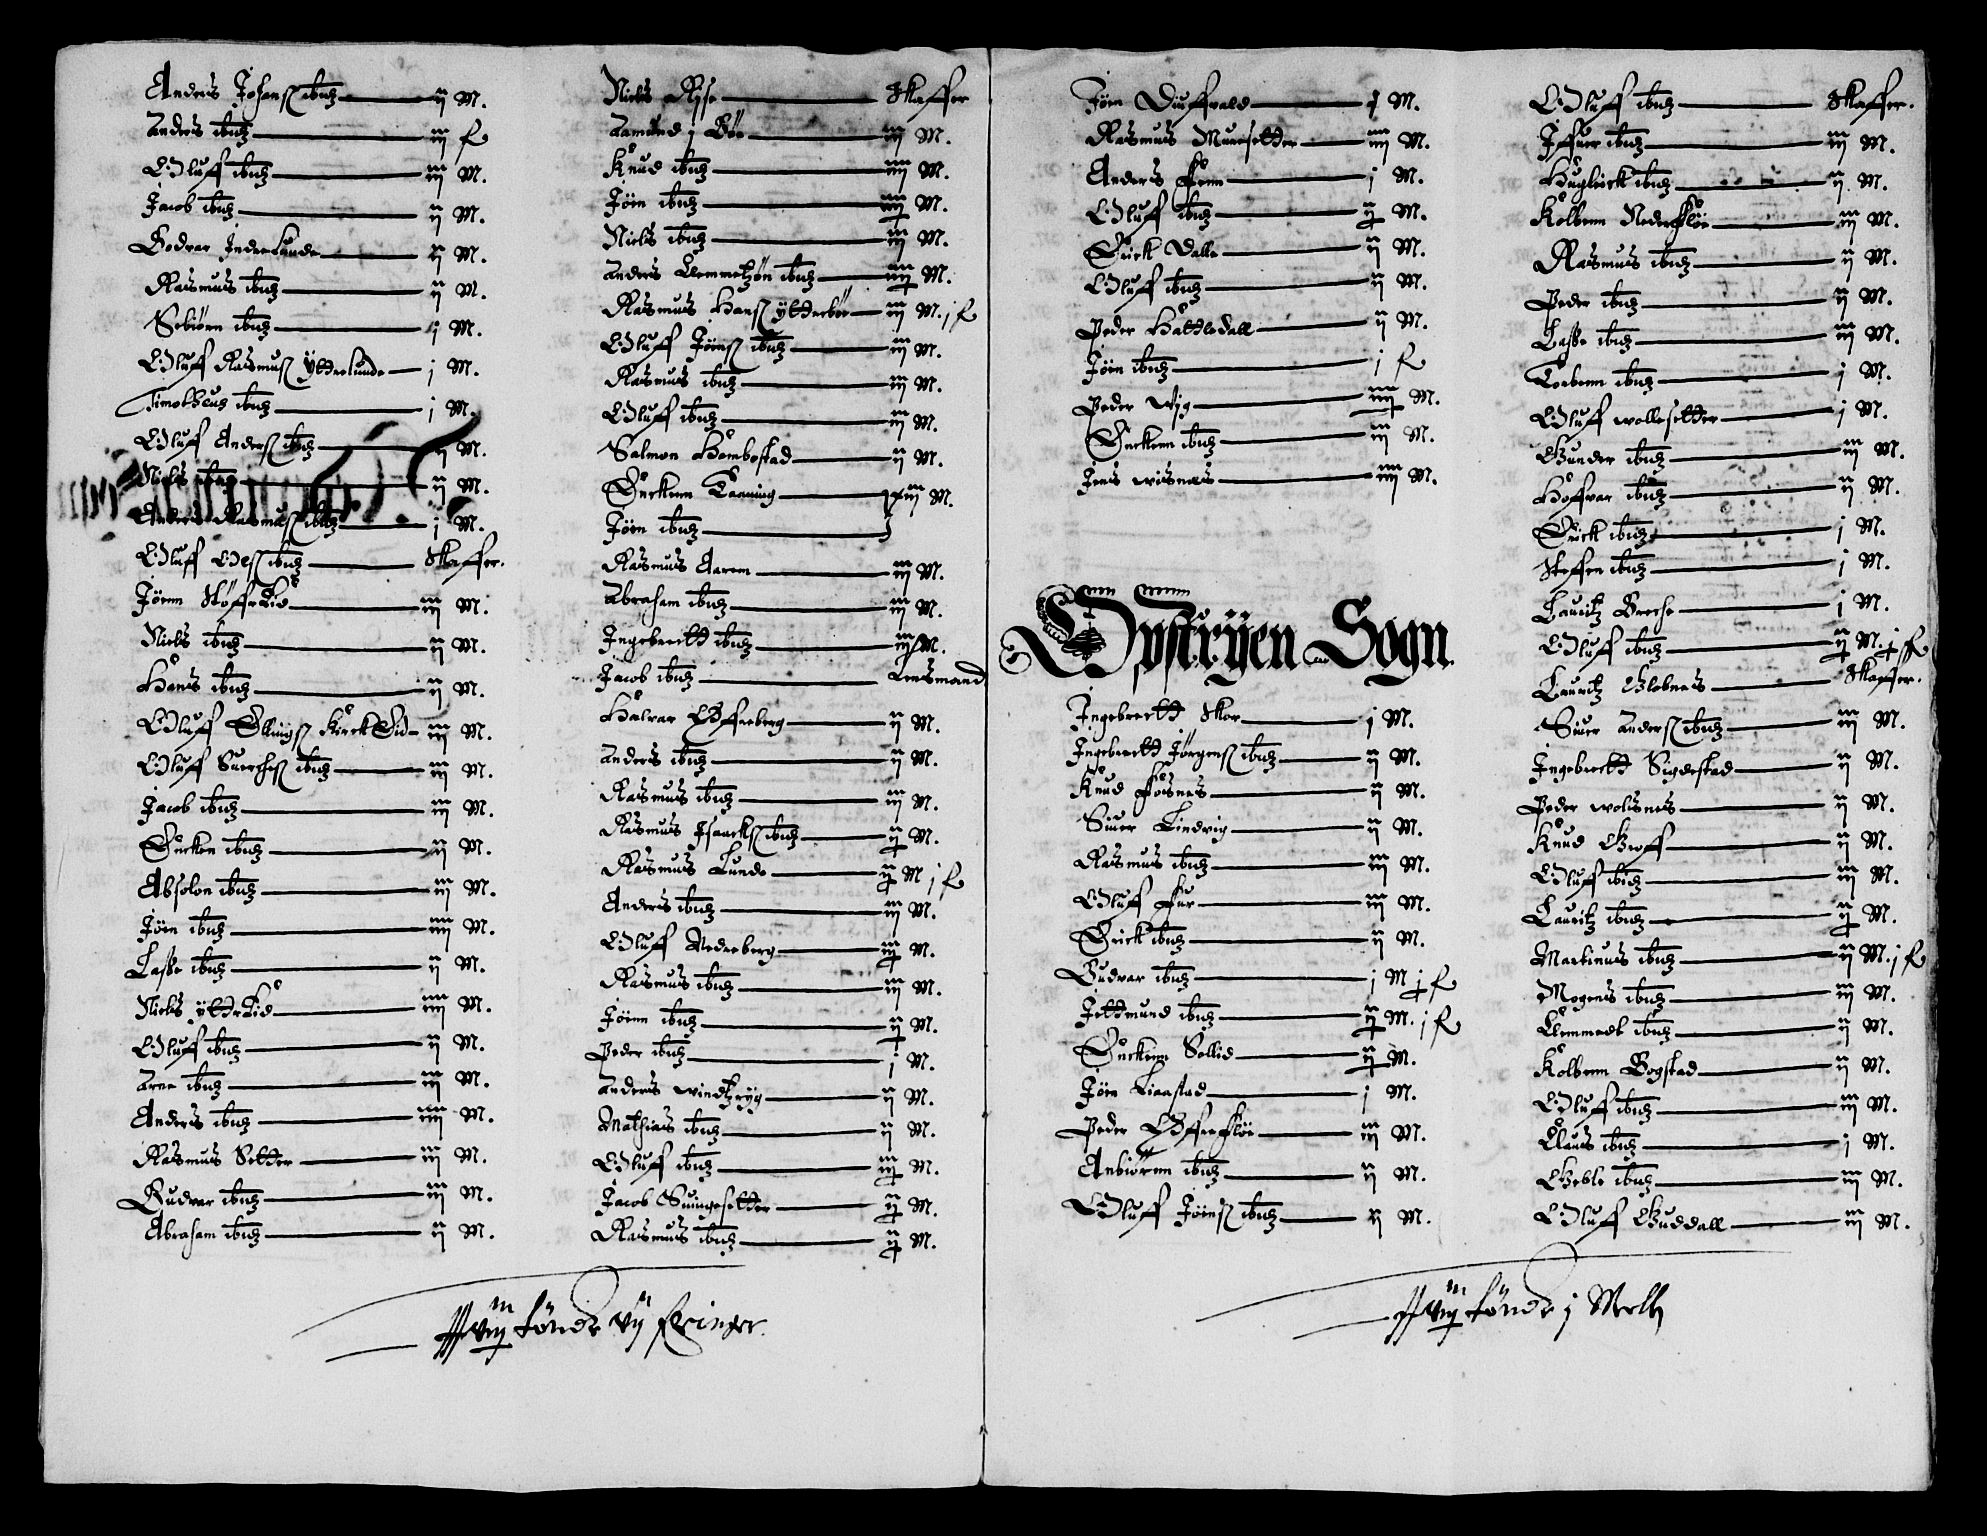 Anders Johanß ibid: ij M.
Anders ibid: iij f
Oluff ibid: iij M.
Jacob ibid: ij M.
Godvar Indrelunde ij M.
Rasmus ibid: ij M.
Sebiørn ibid: j M.
Oluff Rasmuß Yttrelunde j M.
Timotheus ibid: j M.
Oluff Anderß ibid: ij M.
Niels ibid: ij M.
Anders Rasmuß ibid: j M.
Oluff Oelß ibid: Skaffer.
Jörnn Støffrlid iij M.
Niels ibid: ij M.
Hans ibid: ij M.
Oluff Ellingß KirckEid iij M.
Oluff Suerckeß ibid: iij M.
Jacob ibid: iij M.
Ericken ibid: ij M.
Absolon ibid: iij M.
Jörn ibid: iiij M.
Laße ibid: ij M.
Niels yttrLid iiij M.
Oluff ibid: ij M.
Arne ibid: iij M.
Anders ibid: iiij M.
Rasmus Setter iij M.
Gudvar ibid: iij M.
Abraham ibid: ij M.
Niels Ryse Skaffer
Aamund j Bøe iij M.
Knud ibid: iiij M.
Jörn ibid: iiij M.
Niels ibid: iij M.
Anders Clemmetzøn ibid: iiij M.
Rasmus Hanß yttrebøe iij M. j f
Oluff Jörnß ibid: iij M.
Rasmus ibid: iij M.
Oluff ibid: iij M.
Salmon Hombostad ij M.
Erickenn Taaning
Jörn ibid:
Rasmus Aarem iij M.
Abraham ibid: iij M.
Ingebrectt ibid: iij M.
Jacob ibid: Lensmand
Halvar Øffreberg ij M.
Anders ibid: ij M.
Rasmus ibid: iij M.
Rasmus Isaackß ibid: ij M.
Rasmus Lunde ij M j f
Anders ibid: iij M.
Oluff Nedreberg iij M.
Rasmus ibid: iij M.
Jörnn ibid: ij M.
Peder ibid: j M.
Anders windtzryg ij M.
Mathias ibid: ij M.
Oluff ibid: iij M.
Jacob Suingesetter ij M.
Rasmus ibid: ij M.
tönde vij f
Jörn Diuffvald j M.
Rasmus Muresetter iiij M.
Anders Fenn j M.
Oluff ibid: ij M.
Erick Dalle ij M.
Oluff ibid: ij M.
Peder Hattledall ij M.
Jörn ibid: j f
Peder wig iiij M.
Erickenn ibid: iij M.
Jens wisnes iiij M.
Opstryen Sogn.
Ingebrectt Skor j M.
Ingebrectt Jørgenß ibid: ij M.
Knud Fosnes ij M.
Siuer Lindvig ij M.
Rasmus ibid: iij M.
Oluff Fur iij M.
Erick ibid: ij M.
Gudvar ibid: j M j f
Jettmund ibid: ij M. j f
Erickenn Sollid ij M.
Jörn Liaastad j M.
Peder Øffrefloe iij M.
Anbiørnn ibid: ij M.
Oluff Jörnß ibid: ij M.
Oluff ibid: Skaffer.
Iffuer ibid: iiij M.
Huglick ibid: ij M.
Kolbenn Nedrefloe iij M.
Rasmus ibid: ij M.
Peder ibid: ij M.
Laße ibid: iij M.
Torbenn ibid: j M.
Oluff wollesetter j M.
Gunder ibid: iij M.
Hoffvar ibid: ij M.
Erick ibid: j M.
Steffen ibid: j M.
Lauritz Greche j M.
Oluff ibid: ij M. j f
Lauritz Glebnes Skaffer.
Siuer Anderß ibid: iij M.
Ingebrectt Sigdestad ij M.
Peder wolisnes ij M.
Knud Groff ij M.
Oluff ibid: iij M.
Lauritz ibid: ij M.
Martinus ibid: ij M. j f
Mogens ibid: iij M.
Clemmedt ibid: ij M.
Kolbenn Bogstad ij M.
Oluff ibid: iij M.
Claus ibid: j M.
Geble ibid: iij M.
Oluff Guddall iij M.
tönde j Mell